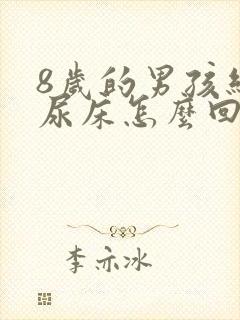 8歲的男孩經
尿床怎麼回
李亦冰